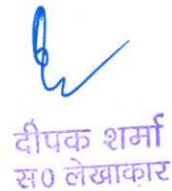 दीपक शर्मा
स० लेखाकार